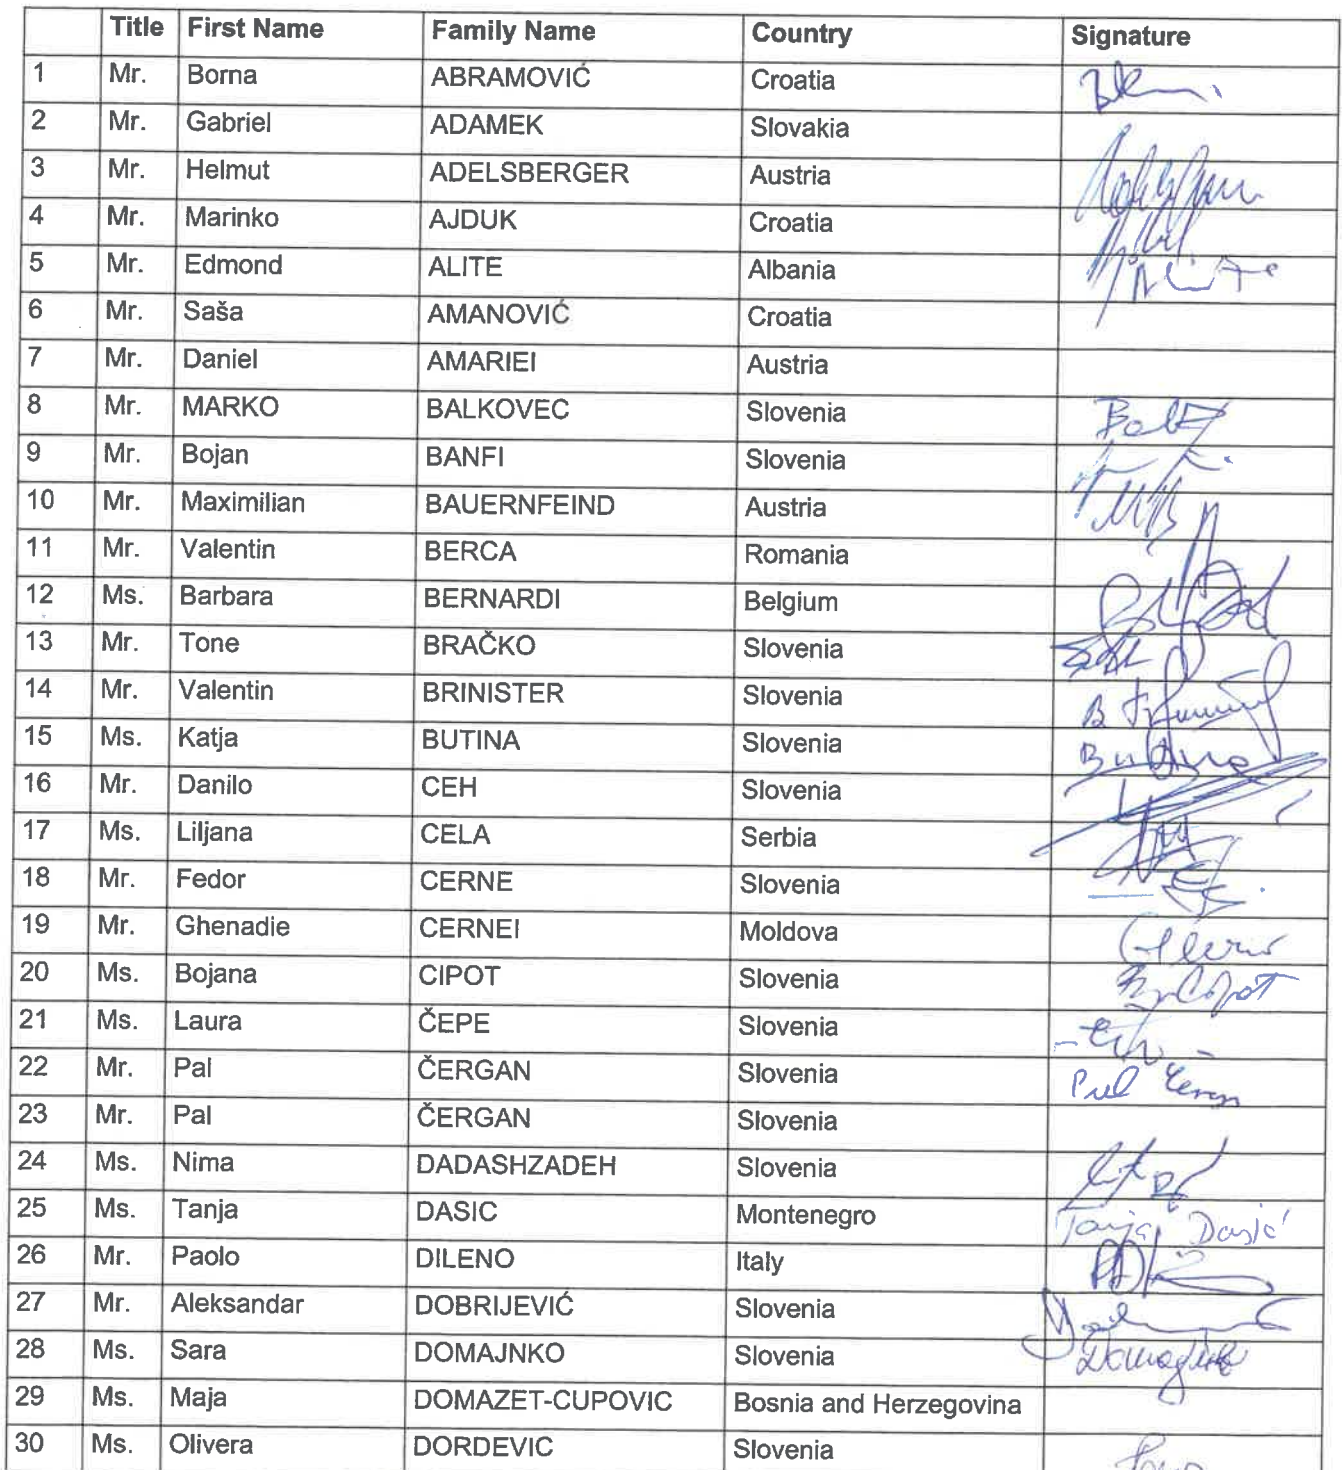 Title First Name Family Name Country Signature
1 Mr. Borna ABRAMOVIĆ Croatia
2 Mr. Gabriel ADAMEK Slovakia
3 Mr. Helmut ADELSBERGER Austria
4 Mr. Marinko AJDUK Croatia
5 Mr. Edmond ALITE Albania
6 Mr. Saša AMANOVIĆ Croatia
7 Mr. Daniel AMARIEI Austria
8 Mr. MARKO BALKOVEC Slovenia
9 Mr. Bojan BANFI Slovenia
10 Mr. Maximilian BAUERNFEIND Austria
11 Mr. Valentin BERCA Romania
12 Ms. Barbara BERNARDI Belgium
13 Mr. Tone BRAČKO Slovenia
14 Mr. Valentin BRINISTER Slovenia
15 Ms. Katja BUTINA Slovenia Butina
16 Mr. Danilo CEH Slovenia
17 Ms. Liljana CELA Serbia
18 Mr. Fedor CERNE Slovenia
19 Mr. Ghenadie CERNEI Moldova
20 Ms. Bojana CIPOT Slovenia
21 Ms. Laura ČEPE Slovenia
22 Mr. Pal ČERGAN Slovenia
23 Mr. Pal ČERGAN Slovenia
24 Ms. Nima DADASHZADEH Slovenia
25 Ms. Tanja DASIC Montenegro Tanja Dasić
26 Mr. Paolo DILENO Italy
27 Mr. Aleksandar DOBRIJEVIĆ Slovenia
28 Ms. Sara DOMAJNKO Slovenia Domajnko
29 Ms. Maja DOMAZET-CUPOVIC Bosnia and Herzegovina
30 Ms. Olivera DORDEVIC Slovenia